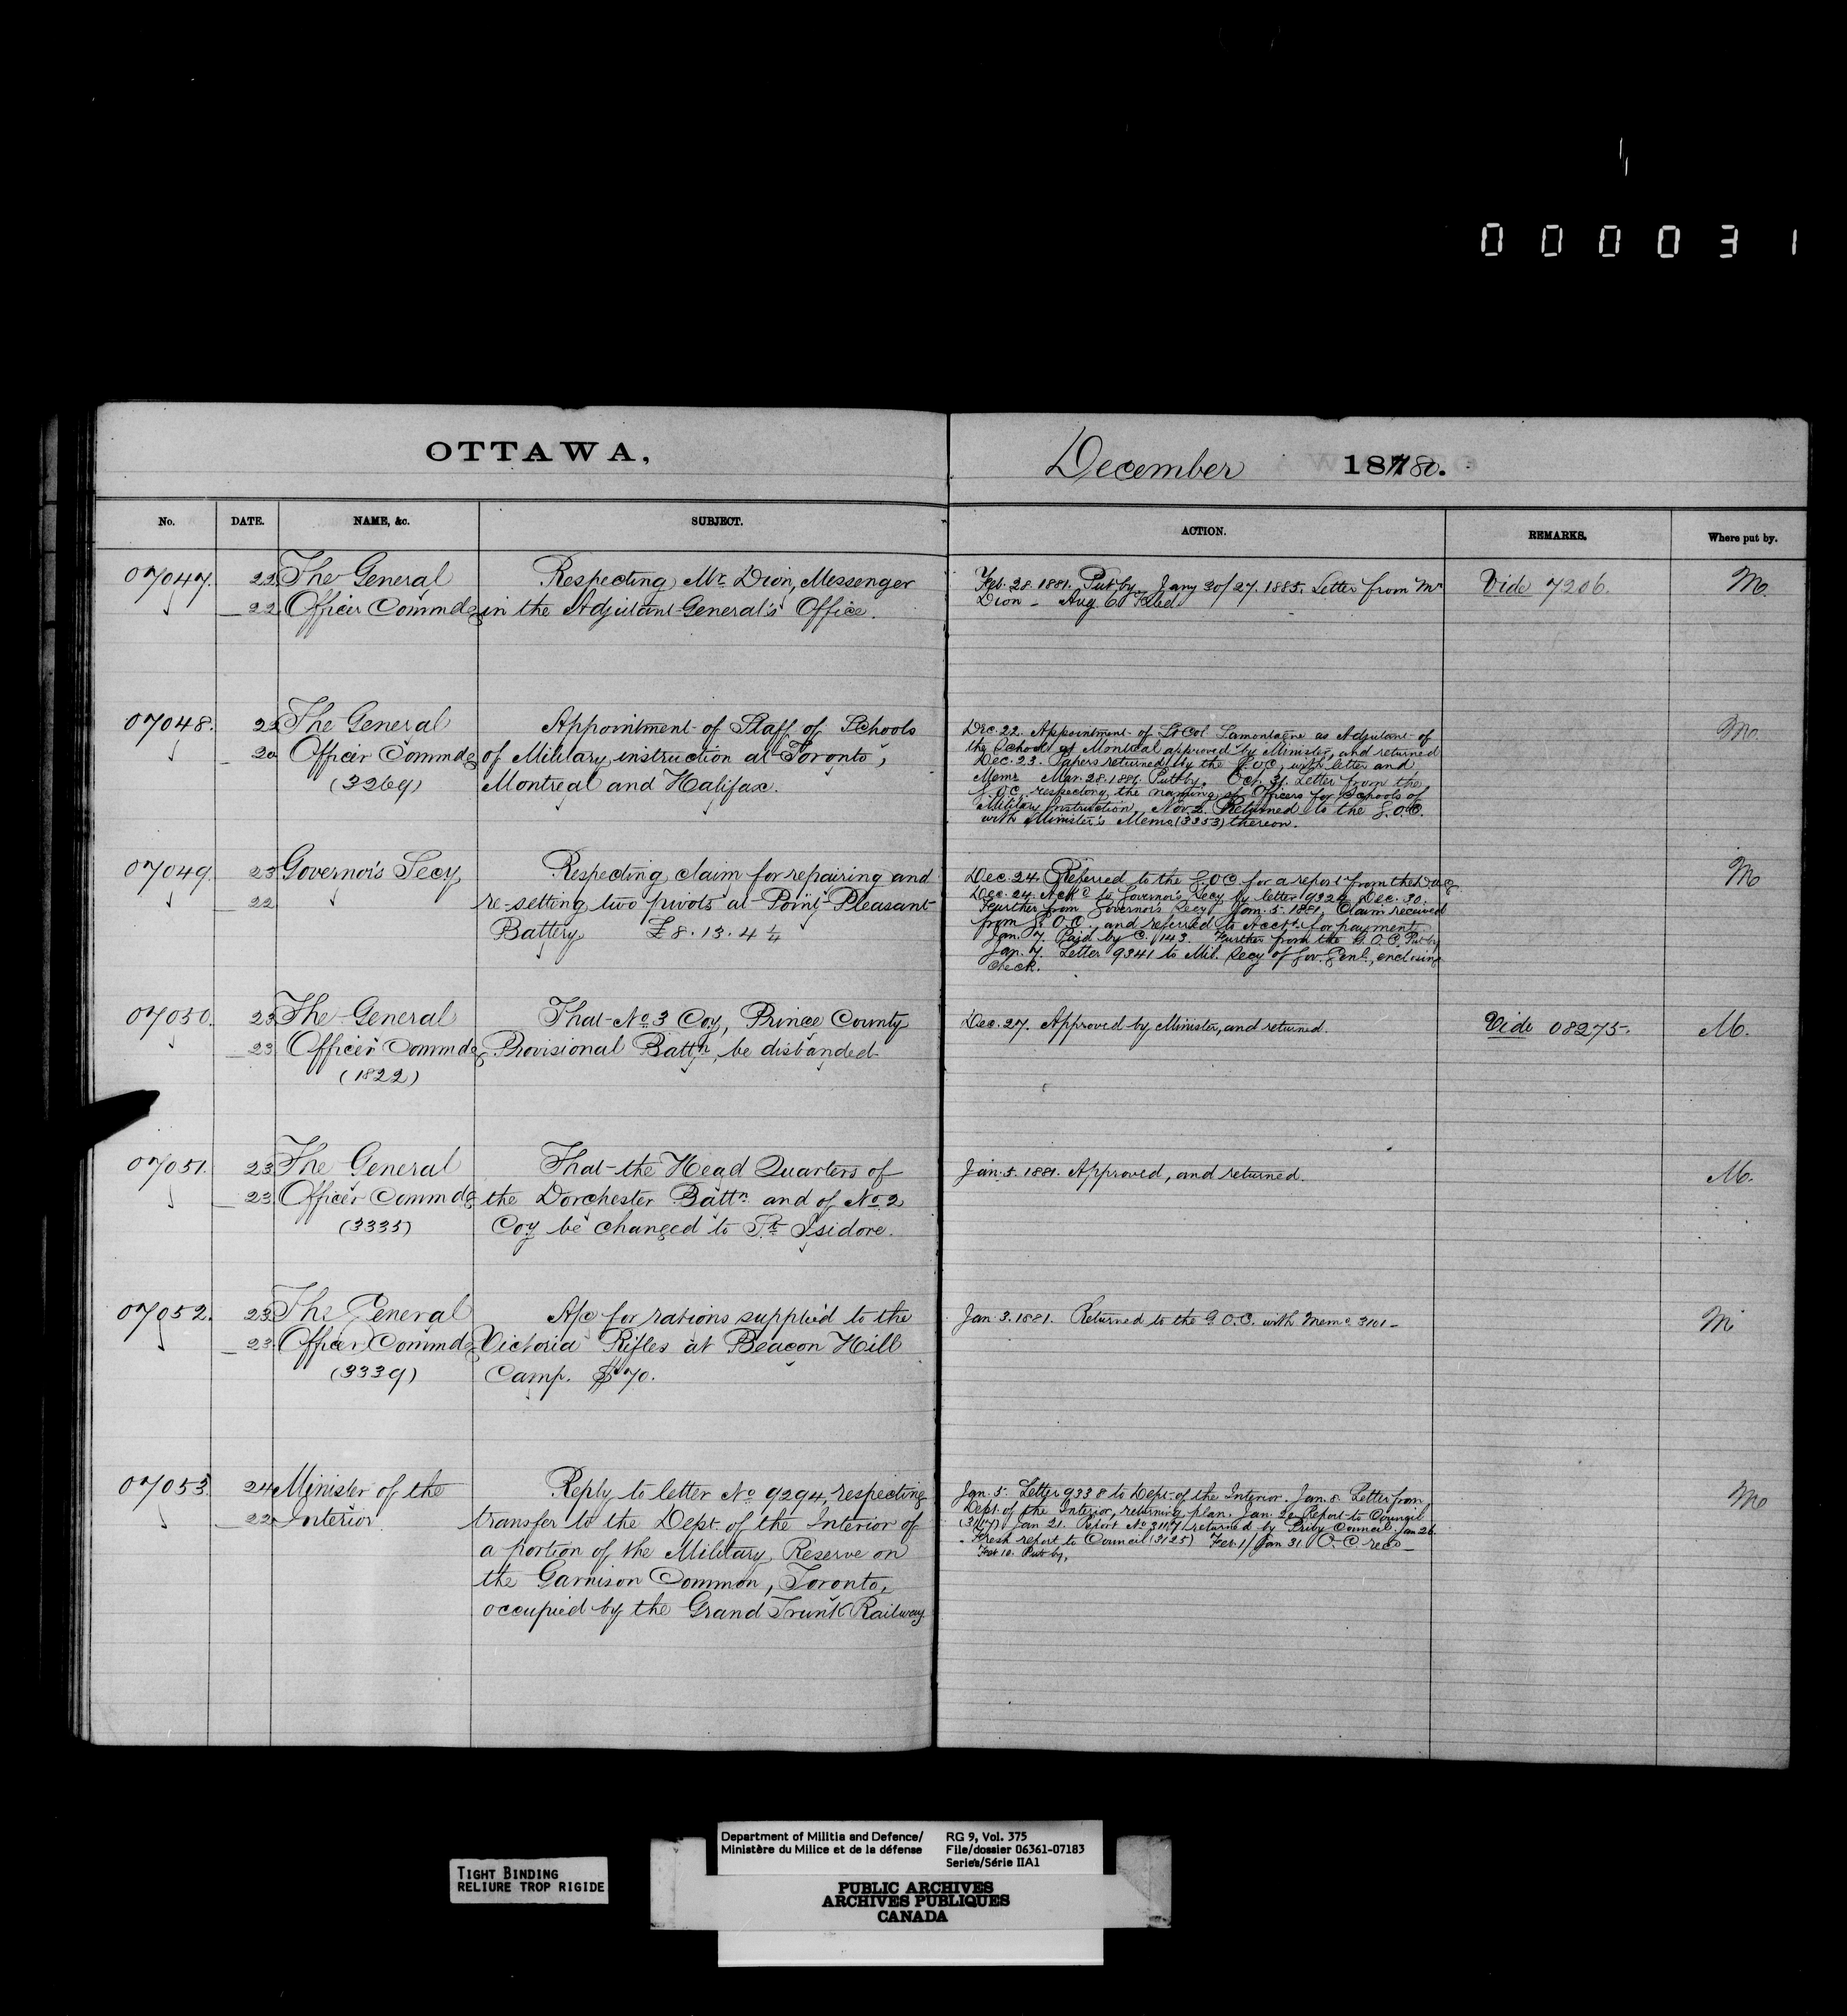 000031
OTTAWA,
December 1880.
No. DATE. NAME, &c. SUBJECT. ACTION. REMARKS. Where put by.
07047. 22 The General Respecting Mr. Dion, Messenger
22 Officer Commdg in the Adjutant-General's Office.
Feb. 28. 1881. Put by. Jany 30/27. 1885. Letter from Mr
Dion - Aug. 6
Vide 7206.
M.
07048. 22 The General Appointment of Staff of Schools
20 Officer Commdg of Military instruction at Toronto,
(3269) Montreal and Halifax.
Dec. 22. Appointment of Lt Col Lamontagne as Adjutant of
the School at Montreal approved by Minister, and returned
Dec. 23. Papers returned by the G.O.C. with letter and
Memo Mar. 28. 1881. Put by. Oct. 31. Letter from the
G.O.C. respecting the naming of Officers for Schools of
Military Instruction. Nov. 2. Returned to the G.O.C.
with Minister's Memo (3353) thereon.
M.
07049. 23 Governor's Secy Respecting claim for repairing and
22 re-setting two pivots at Point Pleasant
Battery £8.13.4¼
Dec. 24. Referred to the G.O.C. for a report from the D.A.G.
Dec. 24. Ackd to Governor's Secy by letter 9324. Dec. 30.
Further from Governor's Secy. Jan. 5. 1881. Claim received
from G.O.C., and referred to Acctt for payment.
Jan. 7. Paid by C. 1143. Further from the G.O.C. Put by
Jan. 7. Letter 9341 to Mil. Secy of Gov. Genl., enclosing
check.
M
07050. 23 The General That No 3 Coy, Prince County
23 Officer Commdg Provisional Battn, be disbanded
(1822)
Dec. 27. Approved by Minister, and returned.
Vide 08275.
M.
07051. 23 The General That the Head Quarters of
23 Officer Commdg the Dorchester Battn. and of No 2
(3335) Coy be changed to St. Isidore.
Jan. 5. 1881. Approved, and returned.
M.
07052. 23 The General A/c for rations supplied to the
23 Officer Commdg Victoria Rifles at Beacon Hill
(3339) Camp. $70.
Jan. 3. 1881. Returned to the G.O.C. with Memo 3101 -
M
07053. 24 Minister of the Reply to letter No 9294, respecting
22 Interior transfer to the Dept of the Interior of
a portion of the Military Reserve on
the Garrison Common, Toronto,
occupied by the Grand Trunk Railway
Jan. 5. Letter 9338 to Dept of the Interior. Jan. 8. Letter from
Dept. of the Interior, returning plan. Jan. 20 Report to Council
(3117) Jan 21. Report No 3117 returned by Privy Council. Jan 26
Fresh report to Council (3125) Feb. 1/Jan 31. O.C. recd -
Feb 10. Put by.
M
TIGHT BINDING
RELIURE TROP RIGIDE
Department of Militia and Defence/ RG 9, Vol. 375
Ministère du Milice et de la défense File/dossier 06361-07183
Series/Série IIA1
PUBLIC ARCHIVES
ARCHIVES PUBLIQUES
CANADA